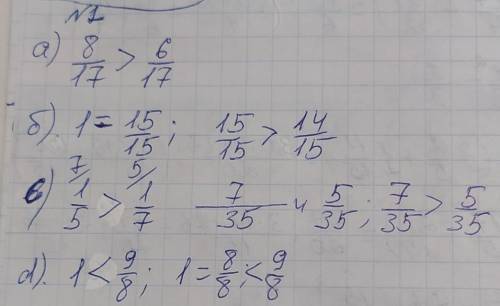 №1
а) 8/17 > 6/17
б). 1 = 15/15; 15/15 > 14/15
в) 7/ 1/5 > 5/ 1/7 7/35 и 5/35; 7/35 > 5/35
d). 1 < 9/8; 1 = 8/8; < 9/8